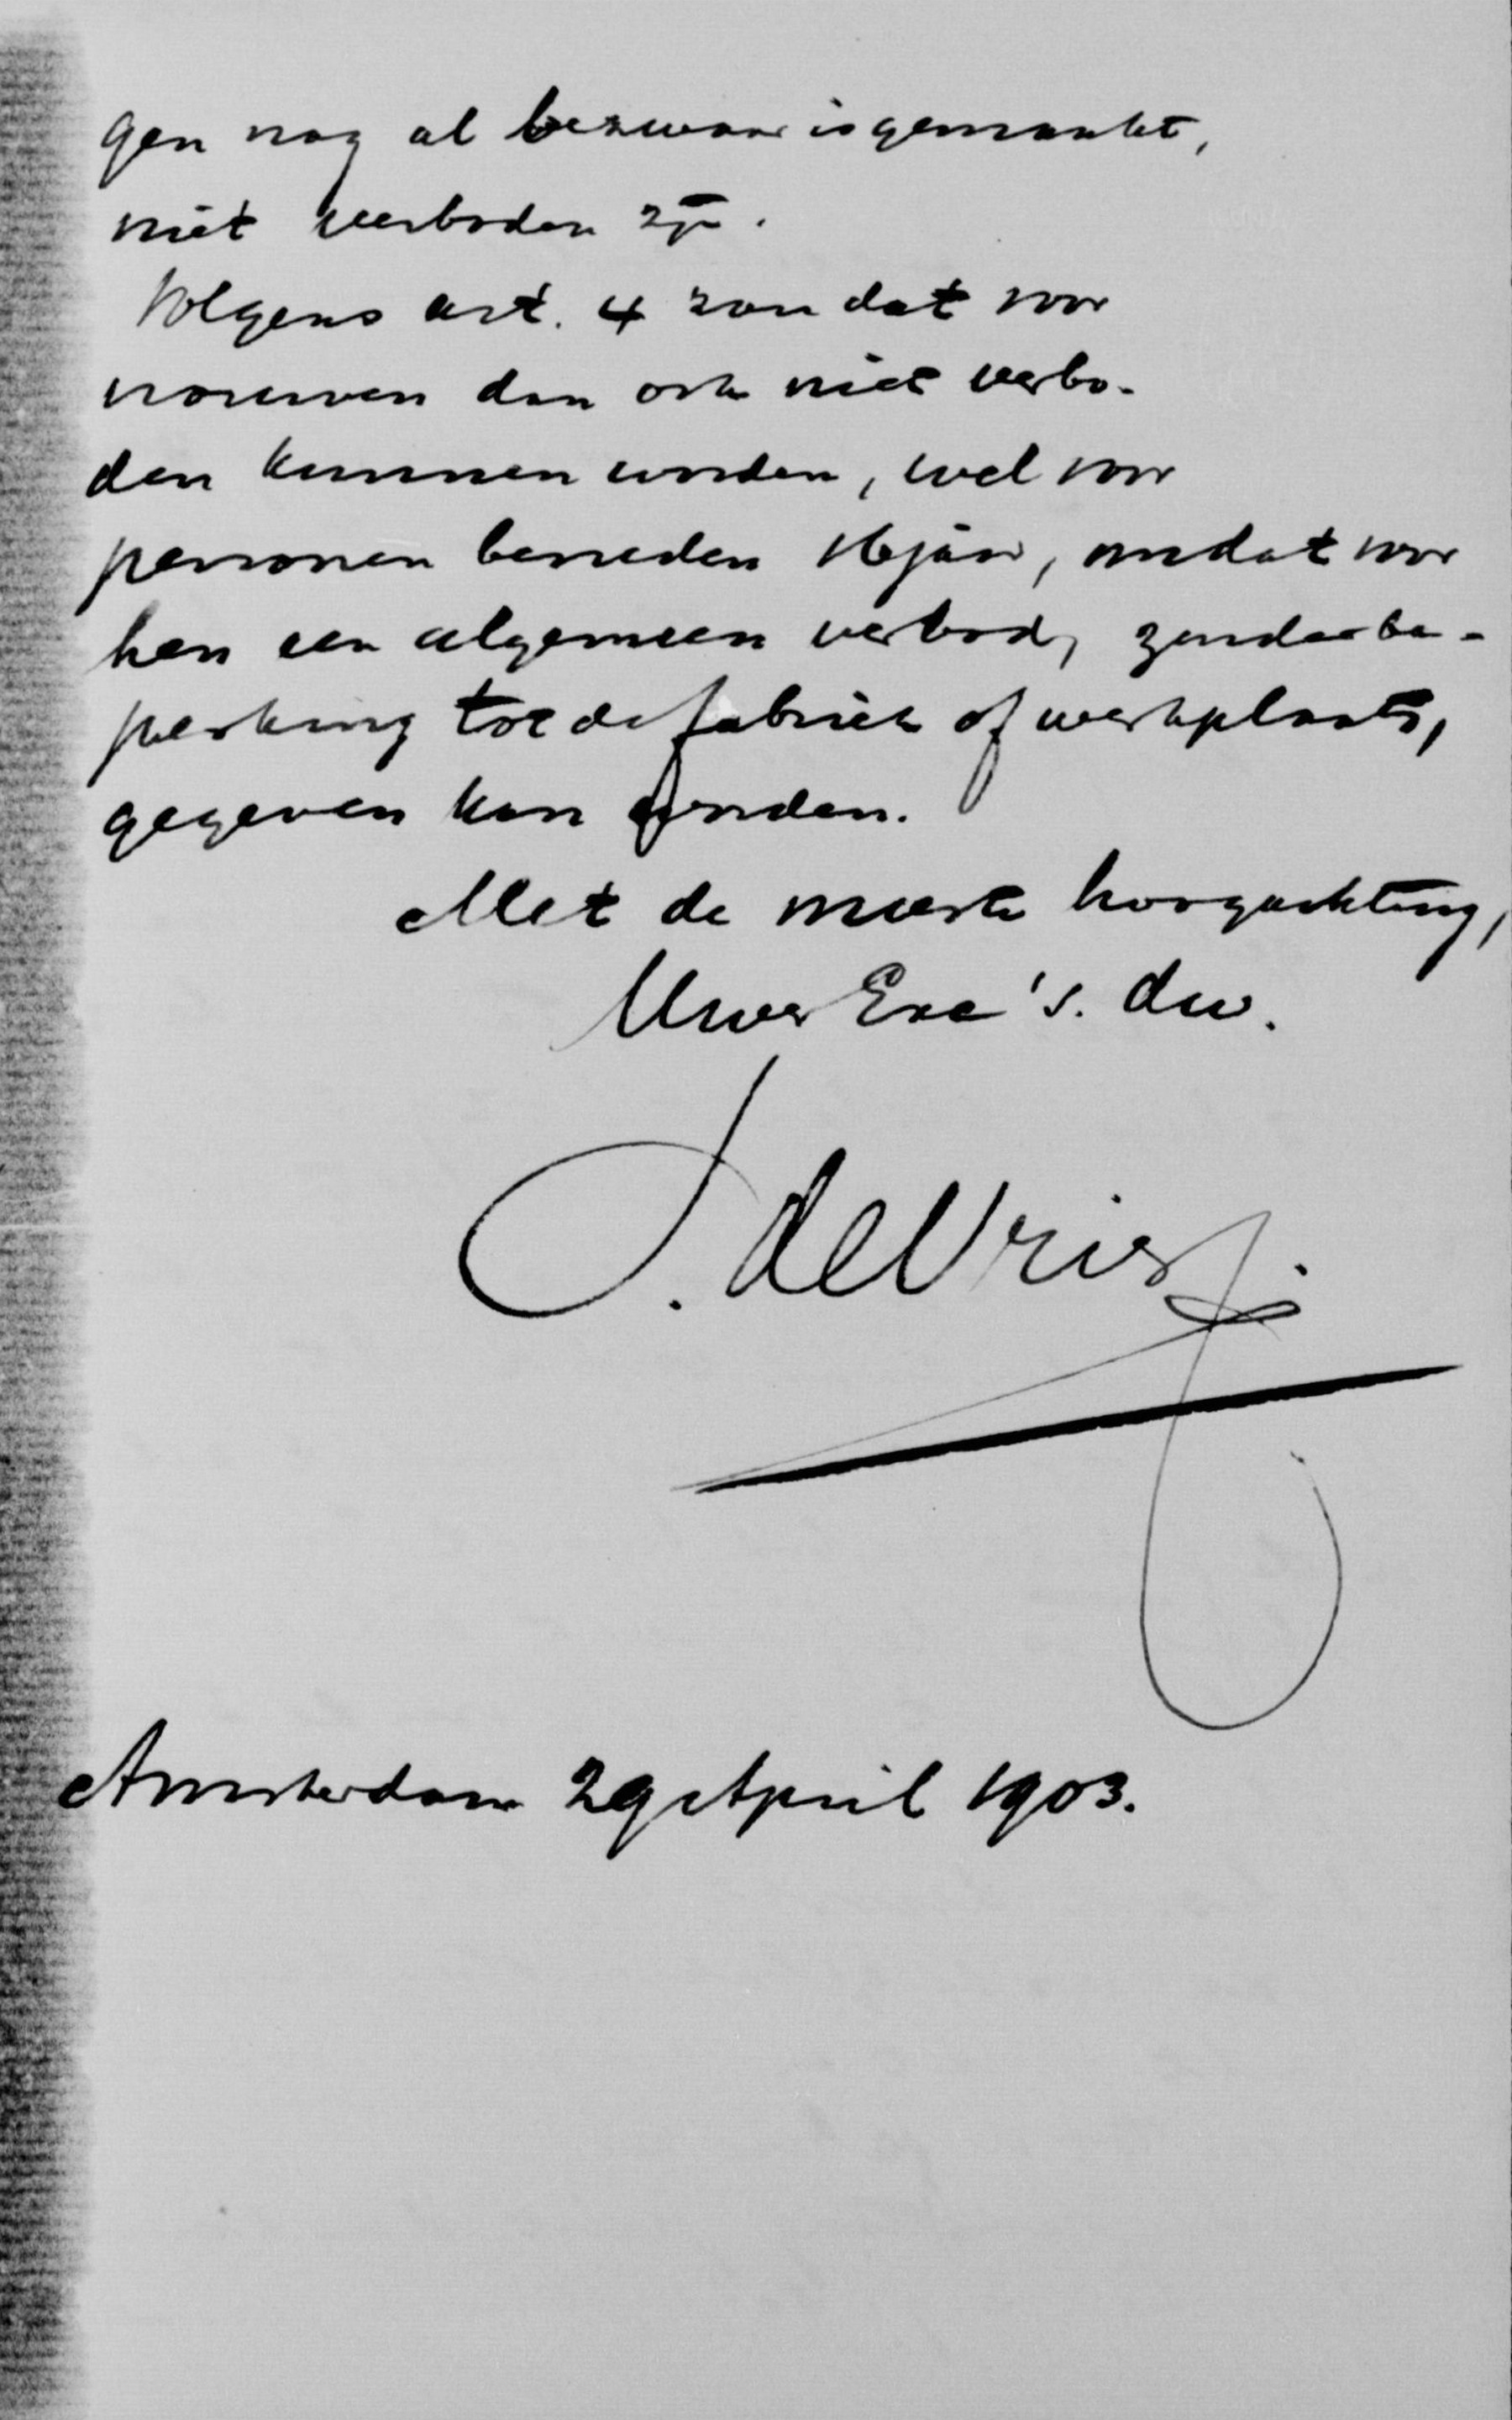 gen nog al bezwaar is gemaakt,
niet verboden zijn.
Volgens art. 4 zou dat voor
vrouwen dan ook niet verbo-
den kunnen worden, wel voor
personen beneden 16 jaar, omdat voor
hen een algemeen verbod, zonder be-
perking tot de fabriek of werkplaats,
gegeven kan worden.
Met de meeste hoogachting,
Uwer Exc's. dw.
S. de Vries
Amsterdam 29 April 1903.